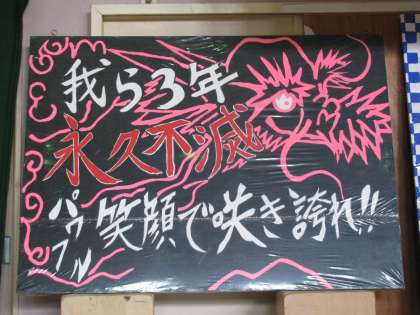 我ら3年
永久不滅
パワフル笑顔で咲き誇れ!!